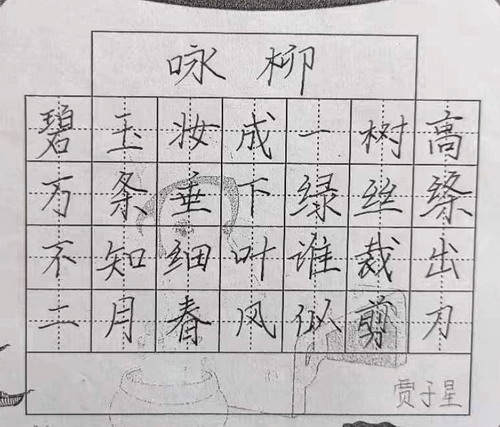 咏柳
碧玉妆成一树高
万条垂下绿丝绦
不知细叶谁裁出
二月春风似剪刀
贾子星